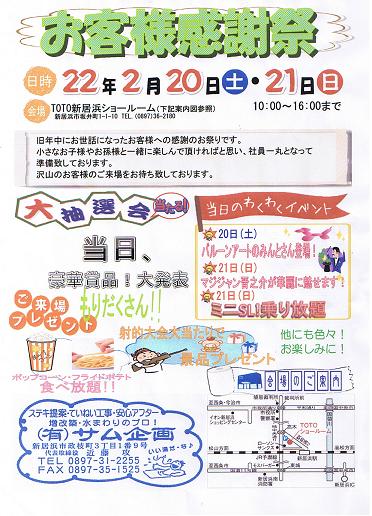 お客様感謝祭
日時 22年2月20日土・21日日
会場 TOTO新居浜ショールーム(下記案内図参照) 10:00〜16:00まで
新居浜市坂井町1-1-10 TEL.(0897)36-2180
旧年中にお世話になったお客様への感謝のお祭りです。
小さなお子様やお孫様と一緒に楽しんで頂ければと思い、社員一丸となって
準備致しております。
沢山のお客様のご来場をお待ち致しております。
大抽選会当たる!
当日、
豪華賞品!大発表
もりだくさん!!
ご来場
プレゼント
ポップコーン・フライドポテト
食べ放題!!
射的大会大当たりで
景品プレゼント
当日のわくわくイベント
20日(土)
バルーンアートのみんとさん登場!
21日(日)
マジシャン晋之介が華麗に魅せます!
21日(日)
ミニSL!乗り放題
他にも色々!
お楽しみに!
ステキ提案・ていねい工事・安心アフター
増改築・水まわりのプロ!
(有)サム企画
新居浜市政枝町3丁目1番9号
代表取締役 近藤 攻
いい湯だ〜な♪
TEL 0897-31-2255
FAX 0897-35-1525
会場のご案内
至西条・今治方面
イオン新居浜
ショッピングセンター
TOTO
ショールーム
松山方面
高松方面
新居浜駅
至西条方面
モスバーガー
新居浜
消防署
新居浜IC